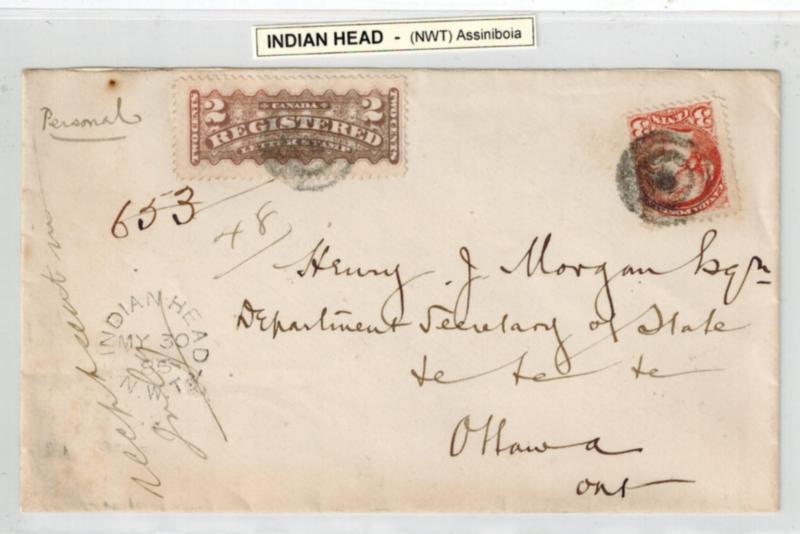 INDIAN HEAD - (NWT) Assiniboia
Personal
TWO CENTS
2 CANADA 2
REGISTERED
LETTER STAMP
TWO CENTS
3 CENTS 3
CANADA POSTAGE
653
48
Henry J. Morgan Esqr
Department Secretary of State
&c &c &c
Ottawa
Ont
INDIAN HEAD
MY 30
85
N.W.T
Recpt sent in